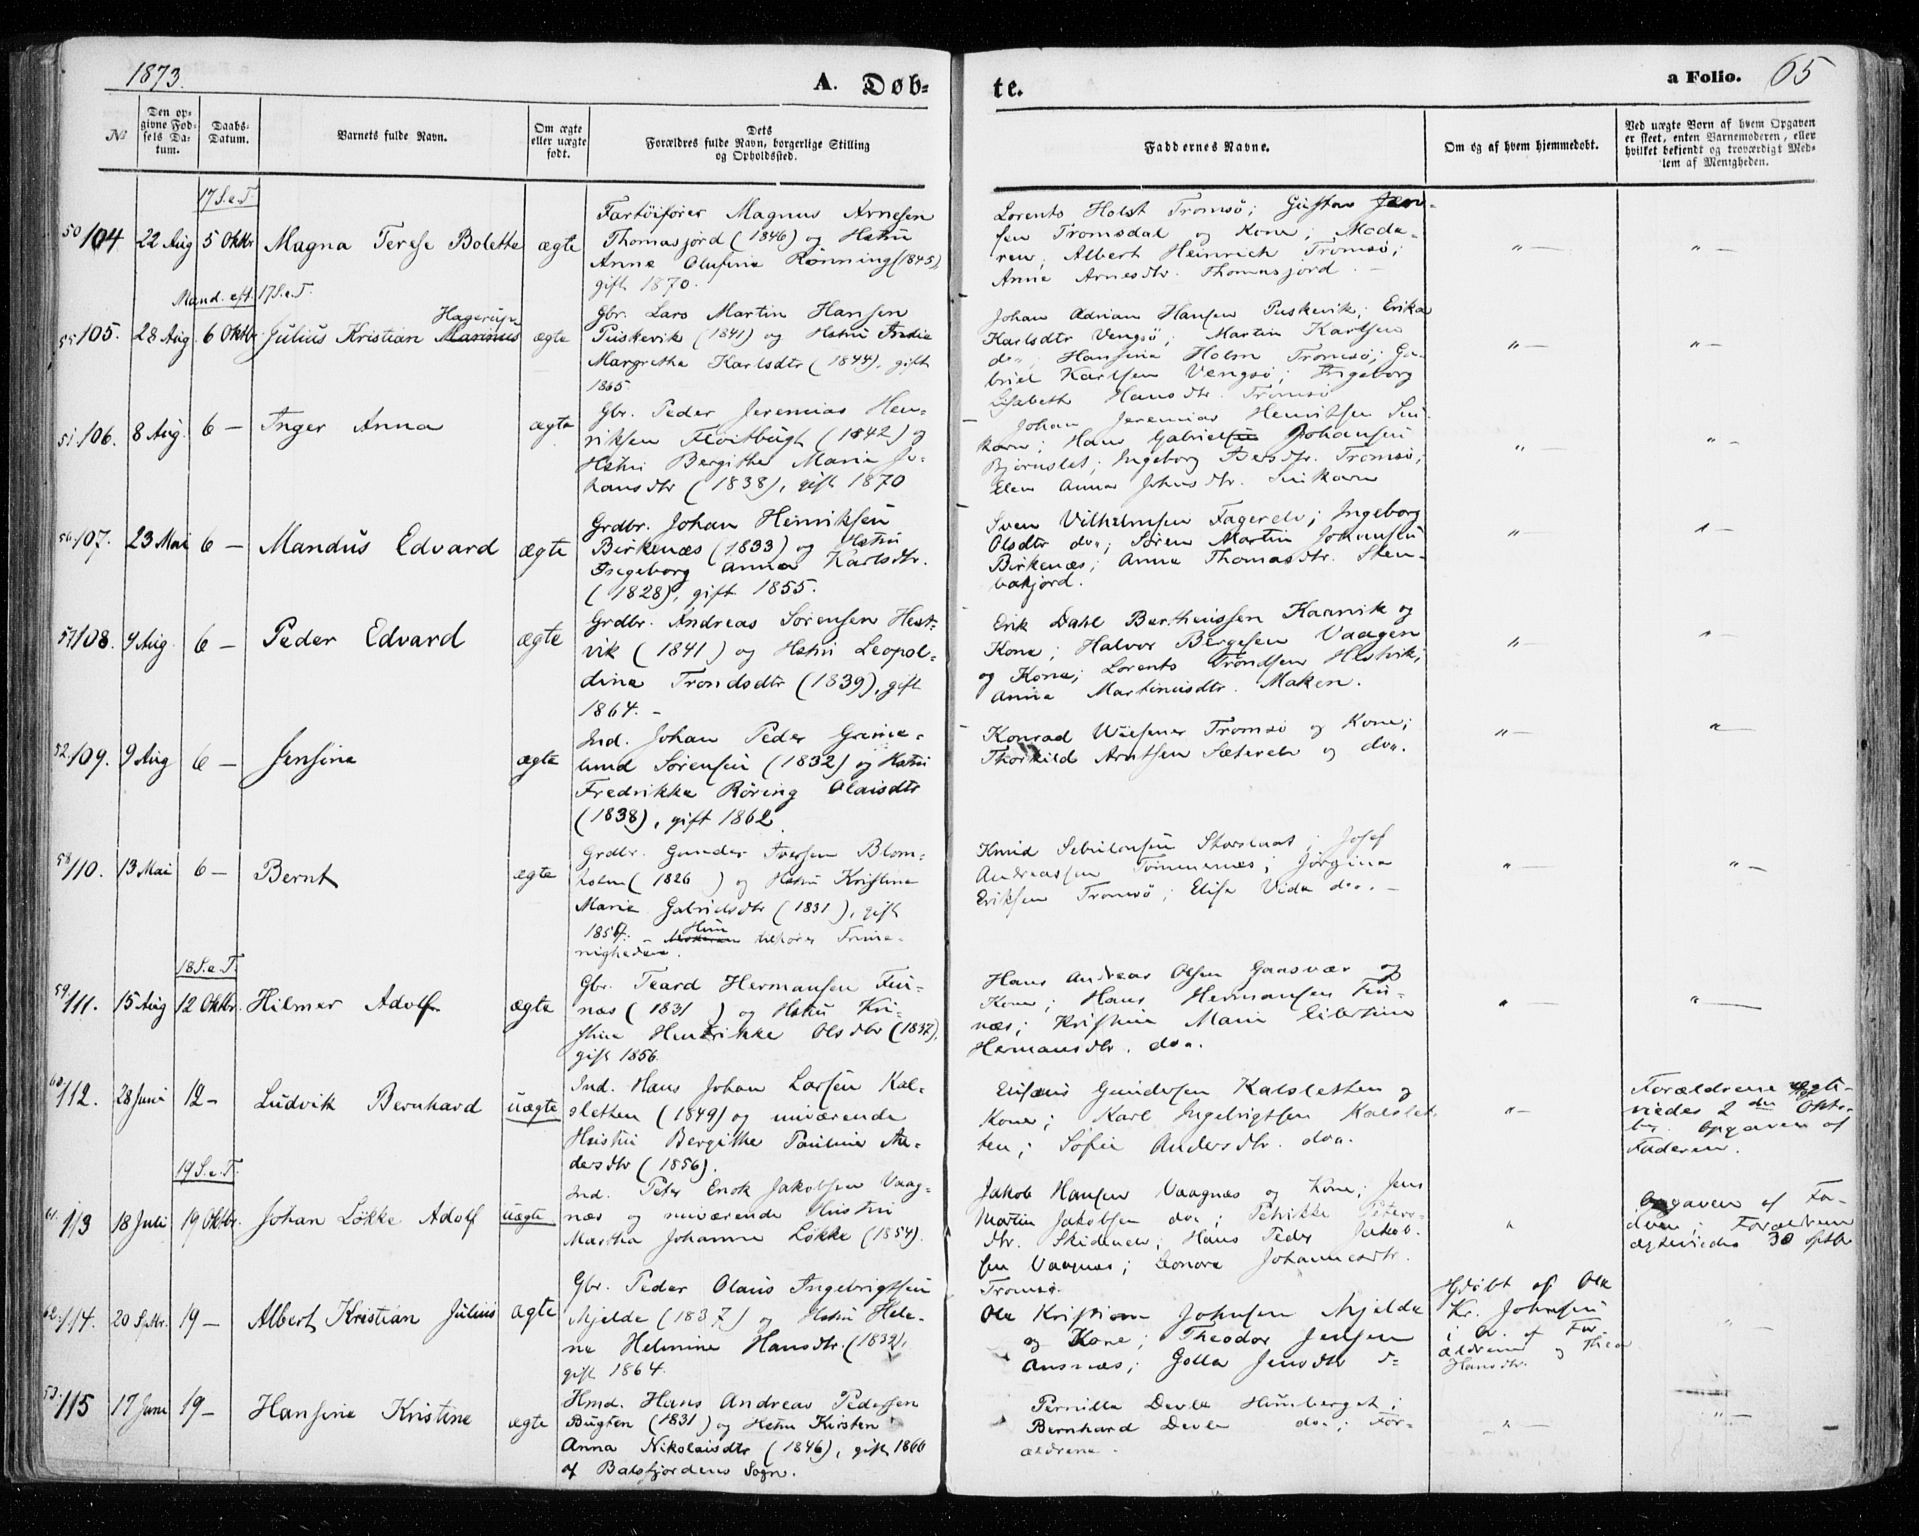 1873.
A. Døb-
te.
a Folio. 65
No
Den op-
givne Fød-
sels Da-
tum.
Daabs-
Datum.
Barnets fulde Navn.
Om ægte
eller uægte
født.
Dets
Forældres fulde Navn, borgerlige Stilling
og Opholdssted.
Faddernes Navne.
Om og af hvem hjemmedøbt.
Ved uægte Børn af hvem Opgaven
er skeet, enten Barnemoderen, eller
hvilket bekjendt og troværdigt Med-
lem af Menigheden.
17 S. e. T.
50 104. 22 Aug 5 Oktbr Magna Terese Bolette ægte
Fartøifører Magnus Arnesen
Thomasjord (1846) og Hstru
Anne Olufine Rønning (1845),
gift 1870.
Lorents Holst Tromsø; Gustav Jen-
sen Tromsdal og Kone; Mode-
ren; Albert Heinrich Tromsø;
Anne Arnesdtr. Thomasjord. —
" — " —
Mand. eft. 17 S. e. T.
55 105. 28 Aug 6 Oktbr Julius Kristian Marinus Hagerup ægte
Gbr. Lars Martin Hansen
Puskevik (1841) og Hstru Andie
Margretha Karlsdtr (1844), gift
1865.
Johan Adrian Hansen Puskevik; Erika
Karlsdtr Vengsø; Martin Karlsen
do; Hansine Holm Tromsø; Ga-
briel Karlsen Vengsø; Ingeborg
Elisabeth Hansdtr. Tromsø
" — " —
51 106. 8 Aug. 6 — Inger Anna ægte
Gbr. Peder Jeremias Hen-
riksen Fløitbugt (1842) og
Hstru Bergithe Marie Jo-
hansdtr (1838), gift 1870
Johan Jeremias Henriksen
Hans Gabrielsen Johansen
Bjørnslet; Ingeborg Tromsø;
Ellen Anna Johnsdtr.
" — " —
56 107. 23 Mai 6 — Mandus Edvard ægte
Grdbr. Johan Henriksen
Birkenæs (1833) og Hstru
Ingeborg Anna Karlsdtr.
(1828), gift 1855.
Sven Vilhelmsen Fagerelv; Ingeborg
Olsdtr do; Søren Martin Johansen
Birkenæs; Anna Thomasdtr. Sten-
bakjord.
" — " —
57 108. 4 Aug. 6 — Peder Edvard ægte
Grdbr. Andreas Sørensen Hest-
vik (1841) og Hstru Leopol-
dine Trondsdtr (1839), gift
1864. —
Erik Dahl Bertheussen Kaarvik og
Kone; Halvor Bergesen Vaagen
og Kone; Lorents Trondsen Hestvik;
Anna Martinusdtr. Maken.
" — " —
52 109. 9 Aug 6 — Jensine ægte
Ind. Johan Peder Grøne-
lund Sørensen (1832) og Hstru
Fredrikke Røring Olaisdtr
(1838), gift 1862.
Konrad Tromsø og Kone;
Thorkild Arntsen Sæterelv og do.
" — " —
58 110. 13 Mai 6 — Bernt ægte
Grdbr. Gunder Iversen Blom-
holm (1826) og Hstru Kristine
Marie Gabrielsdtr (1831), gift
1857. — Hun tilhører Trine-
nigheden.
Knud Storslaat; Josef
Andreassen Tønnesnæs; Jørgine
Eriksen Tromsø; Elise Vida do. —
" — " —
18 S. e. T.
59 111. 15 Aug 12 Oktbr. Hilmer Adolf ægte
Gbr. Teard Hermansen Fin-
næs (1831) og Hstru Kri-
stine Henrikke Olsdtr (1837),
gift 1856.
Hans Andreas Olsen Gaasvær og
Kone; Hans Hermansen Fin-
næs; Kristine Marie Elbertine
Hermansdtr. do.
" — " —
60 112. 28 Juni 12 — Ludvik Bernhard uægte
Ind. Hans Johan Larsen Kal-
sletten (1849) og nuværende
Hustru Bergithe Pauline An-
dersdtr (1856).
Gundersen Kalsletten og
Kone; Karl Ingebrigtsen Kalslet-
ten; Sofie Andersdtr. do.
" —
Forældrene ægte-
viedes 2den Okto-
br. Opgaven af
Faderen.
19 S. e. T.
61 113 18 Juli 19 Oktbr. Johan Løkke Adolf uægte
Ind. Peter Enok Jakobsen Vaag-
næs og nuværende Hustru
Martha Johanna Løkke (1854).
Jakob Hansen Vaagnæs og Kone; Jens
Martin Jakobsen do; Petrikke Peters-
dtr. Skidenelv; Hans Peder Jakob-
sen Vaagnæs; Leonora Johannesdtr.
Tromsø.
"
Opgaven af Fa-
deren; Forældrene
ægteviedes 30 Septbr
62 114. 20 Septbr. 19 — Albert Kristian Julius ægte
Gbr. Peder Olaus Ingebrigtsen
Mjelde (1837) og Hstru Hele-
ne Helmine Hansdtr. (1832),
gift 1864.
Ole Kristian Johnsen Mjelde
og Kone; Theodor Jensen
Ansnæs; Golla Jensdtr do
Hjdøbt af Ole
Kr. Johnsen
i Ov. af For-
ældrene og Thea
Hansdtr.
" —
53 115 17 Juni 19 — Hansine Kristine ægte
Hmd. Hans Andreas Pedersen
Bugten (1831) og Hstru Kirsten
Anna Nikolaisdtr (1846), gift 1866
af Balsfjordens Sogn.
Pernilla Devle Himberget;
Bernhard Devle do; For-
ældrene.
" — " —